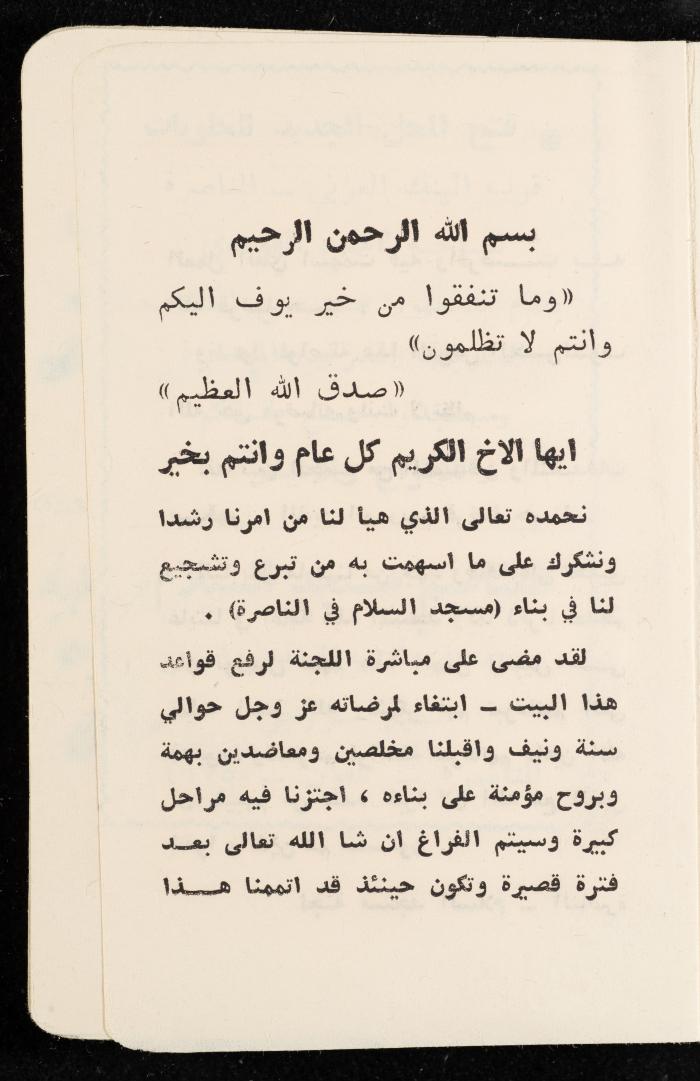 بسم الله الرحمن الرحيم
«وما تنفقوا من خير يوف اليكم
وانتم لا تظلمون»
«صدق الله العظيم»
ايها الاخ الكريم كل عام وانتم بخير
نحمده تعالى الذي هيأ لنا من امرنا رشدا
ونشكرك على ما اسهمت به من تبرع وتشجيع
لنا في بناء (مسجد السلام في الناصرة) .
لقد مضى على مباشرة اللجنة لرفع قواعد
هذا البيت ــ ابتفاء لمرضاته عز وجل حوالي
سنة ونيف واقبلنا مخلصين ومعاضدين بهمة
وبروح مؤمنة على بناءه ، اجتزنا فيه مراحل
كبيرة وسيتم الفراغ ان شا الله تعالى بعـد
فترة قصيرة وتكون حينئذ قد اتممنا هــذا